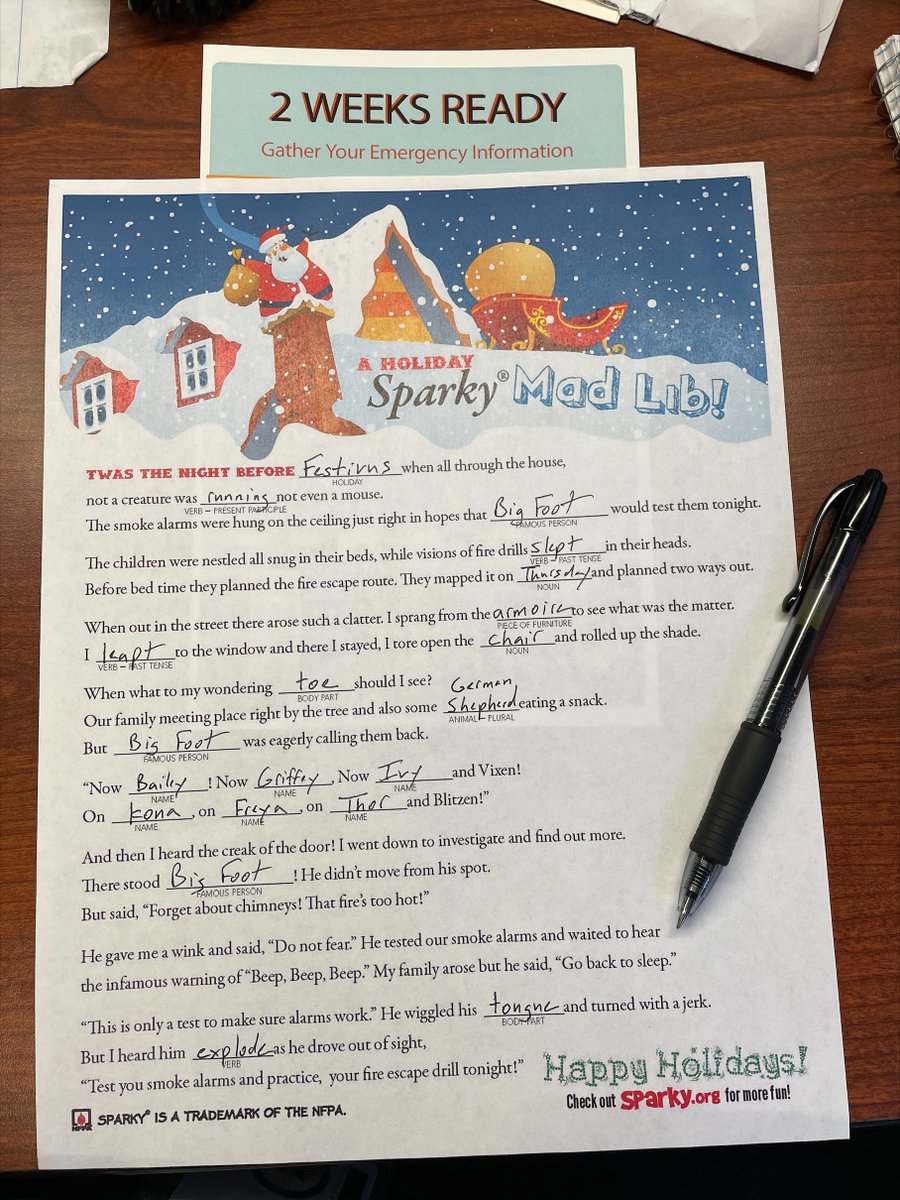 2 WEEKS READY
Gather Your Emergency Information
A HOLIDAY
Sparky® Mad Lib!
TWAS THE NIGHT BEFORE Festivus when all through the house,
HOLIDAY
not a creature was running not even a mouse.
VERB – PRESENT PARTICIPLE
The smoke alarms were hung on the ceiling just right in hopes that Big Foot would test them tonight.
FAMOUS PERSON
The children were nestled all snug in their beds, while visions of fire drills slept in their heads.
VERB – PAST TENSE
Before bed time they planned the fire escape route. They mapped it on Thursday and planned two ways out.
NOUN
When out in the street there arose such a clatter. I sprang from the armoire to see what was the matter.
PIECE OF FURNITURE
I leapt to the window and there I stayed, I tore open the chair and rolled up the shade.
VERB – PAST TENSE NOUN
When what to my wondering toe should I see?
BODY PART
German
Our family meeting place right by the tree and also some Shepherd eating a snack.
ANIMAL – PLURAL
But Big Foot was eagerly calling them back.
FAMOUS PERSON
“Now Bailey! Now Griffey, Now Ivy and Vixen!
NAME NAME NAME
On Kona, on Freya, on Thor and Blitzen!”
NAME NAME NAME
And then I heard the creak of the door! I went down to investigate and find out more.
There stood Big Foot! He didn’t move from his spot.
FAMOUS PERSON
But said, “Forget about chimneys! That fire’s too hot!”
He gave me a wink and said, “Do not fear.” He tested our smoke alarms and waited to hear
the infamous warning of “Beep, Beep, Beep.” My family arose but he said, “Go back to sleep.”
“This is only a test to make sure alarms work.” He wiggled his tongue and turned with a jerk.
BODY PART
But I heard him explode as he drove out of sight,
VERB
“Test you smoke alarms and practice, your fire escape drill tonight!”
Happy Holidays!
Check out sparky.org for more fun!
NFPA SPARKY® IS A TRADEMARK OF THE NFPA.